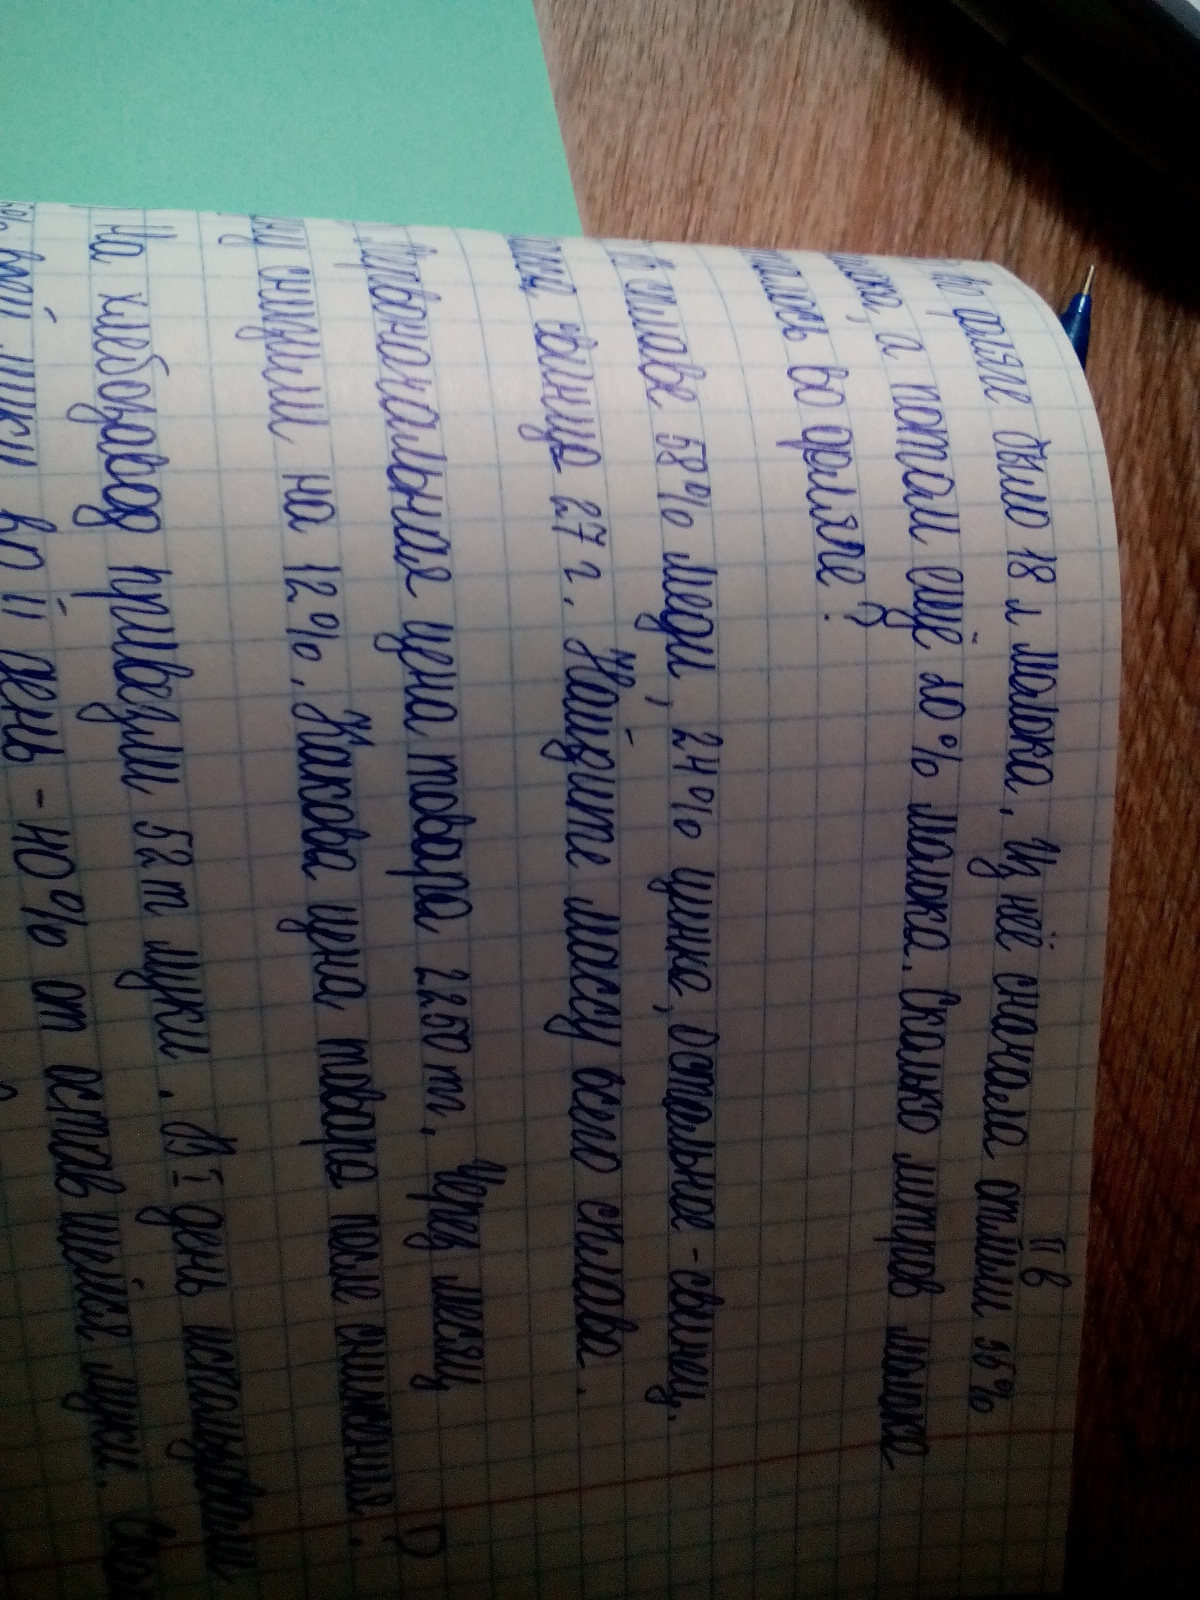 II в
Во фляге было 18 л молока, Из неё сначала отлили 55%
а потом ещё 20% молока. Сколько литров молока
во фляге?
В сплаве 58% меди, 24% цинка, остальное - свинец.
свинца 27 г. Найдите массу всего сплава.
Первоначальная цена товара 2250 т. Через месяц
снизили на 12%. Какова цена товара после снижения?
На хлебозавод привезли 52 т муки. В I день использовали
муки во II день - 40% от оставшейся муки.